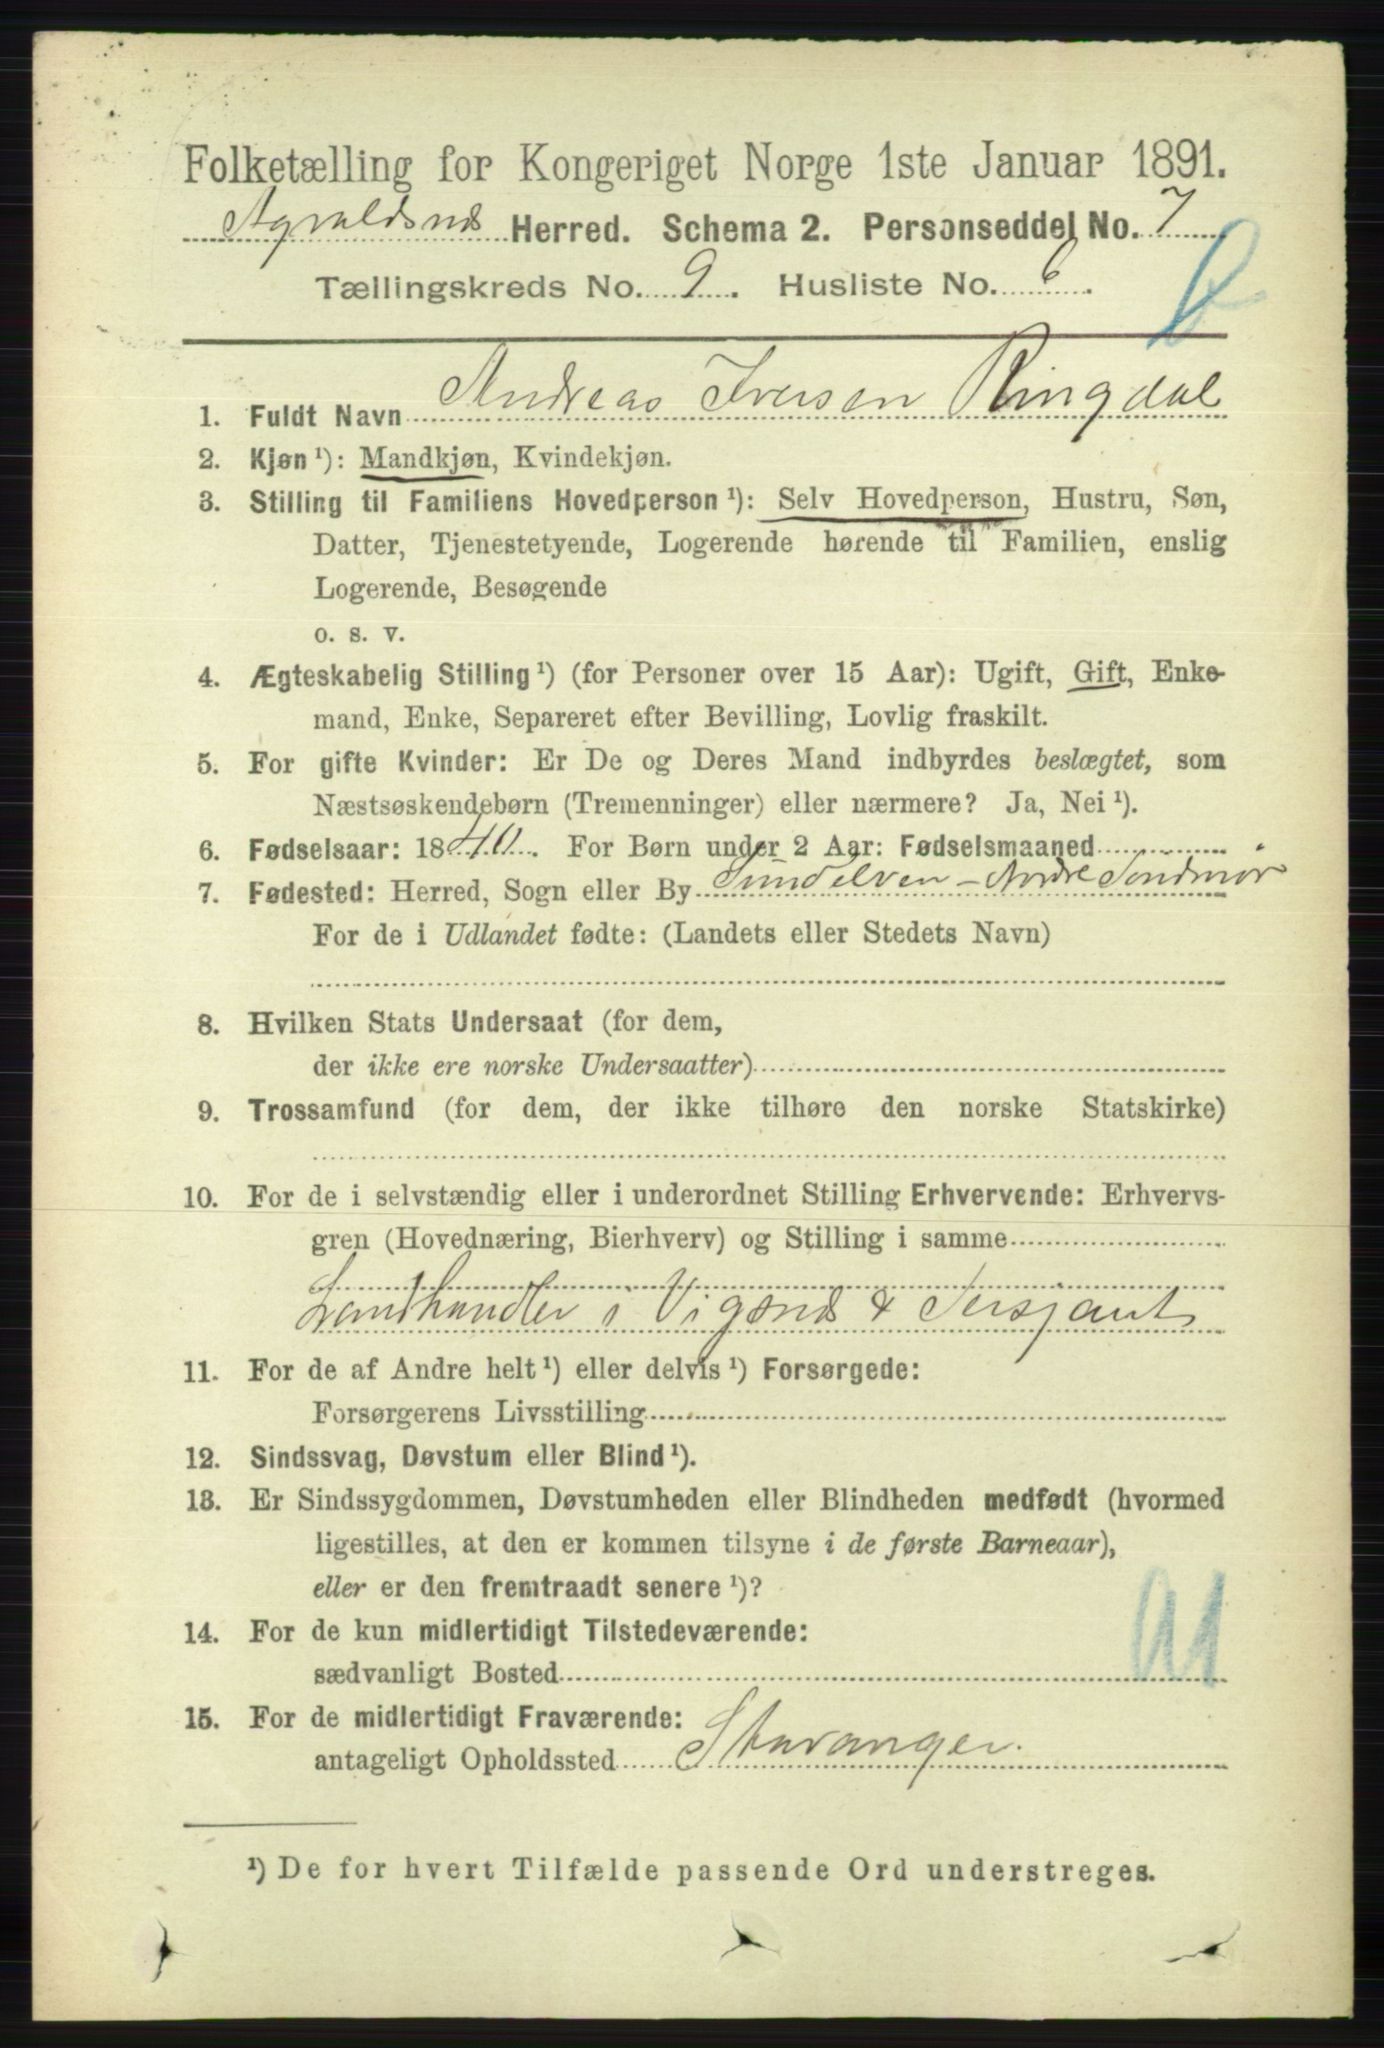 Folketælling for Kongeriget Norge 1ste Januar 1891.
Agvaldsnes Herred. Schema 2. Personseddel No. 7
Tællingskreds No. 9. Husliste No. 6.
1. Fuldt Navn Andreas Iversen Ringdal
2. Kjøn ¹): Mandkjøn, Kvindekjøn.
3. Stilling til Familiens Hovedperson ¹): Selv Hovedperson, Hustru, Søn,
Datter, Tjenestetyende, Logerende hørende til Familien, enslig
Logerende, Besøgende
o. s. v.
4. Ægteskabelig Stilling ¹) (for Personer over 15 Aar): Ugift, Gift, Enke-
mand, Enke, Separeret efter Bevilling, Lovlig fraskilt.
5. For gifte Kvinder: Er De og Deres Mand indbyrdes beslægtet, som
Næstsøskendebørn (Tremenninger) eller nærmere? Ja, Nei ¹).
6. Fødselsaar: 1840. For Børn under 2 Aar: Fødselsmaaned
7. Fødested: Herred, Sogn eller By Sundelven - Nordre Sondmør
For de i Udlandet fødte: (Landets eller Stedets Navn)
8. Hvilken Stats Undersaat (for dem,
der ikke ere norske Undersaatter)
9. Trossamfund (for dem, der ikke tilhøre den norske Statskirke)
10. For de i selvstændig eller i underordnet Stilling Erhvervende: Erhvervs-
gren (Hovednæring, Bierhverv) og Stilling i samme
Landhandler i Vigsnæs & Sersjant
11. For de af Andre helt ¹) eller delvis ¹) Forsørgede:
Forsørgerens Livsstilling
12. Sindssvag, Døvstum eller Blind ¹).
13. Er Sindssygdommen, Døvstumheden eller Blindheden medfødt (hvormed
ligestilles, at den er kommen tilsyne i de første Barneaar),
eller er den fremtraadt senere ¹)?
14. For de kun midlertidigt Tilstedeværende:
sædvanligt Bosted
15. For de midlertidigt Fraværende:
antageligt Opholdssted Stavanger.
¹) De for hvert Tilfælde passende Ord understreges.